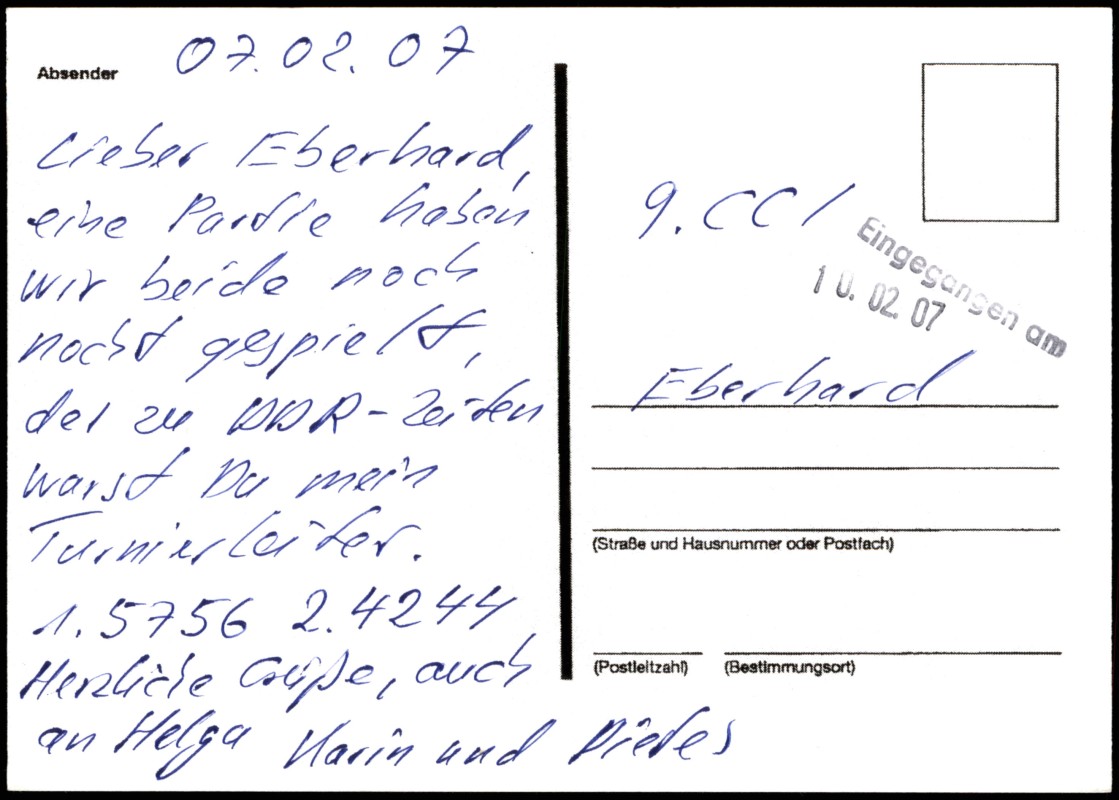 Absender
07.02.07
Lieber Eberhard,
eine Partie haben
wir beide noch
nocht gespielt,
det zu DDR-Zeiten
warst Du mein
Turnierleiter.
1. 5756 2. 4244
Herzliche Grüße, auch
an Helga Karin und Dieter
9. CC /
Eingegangen am
10. 02. 07
Eberhard
(Straße und Hausnummer oder Postfach)
(Postleitzahl) (Bestimmungsort)